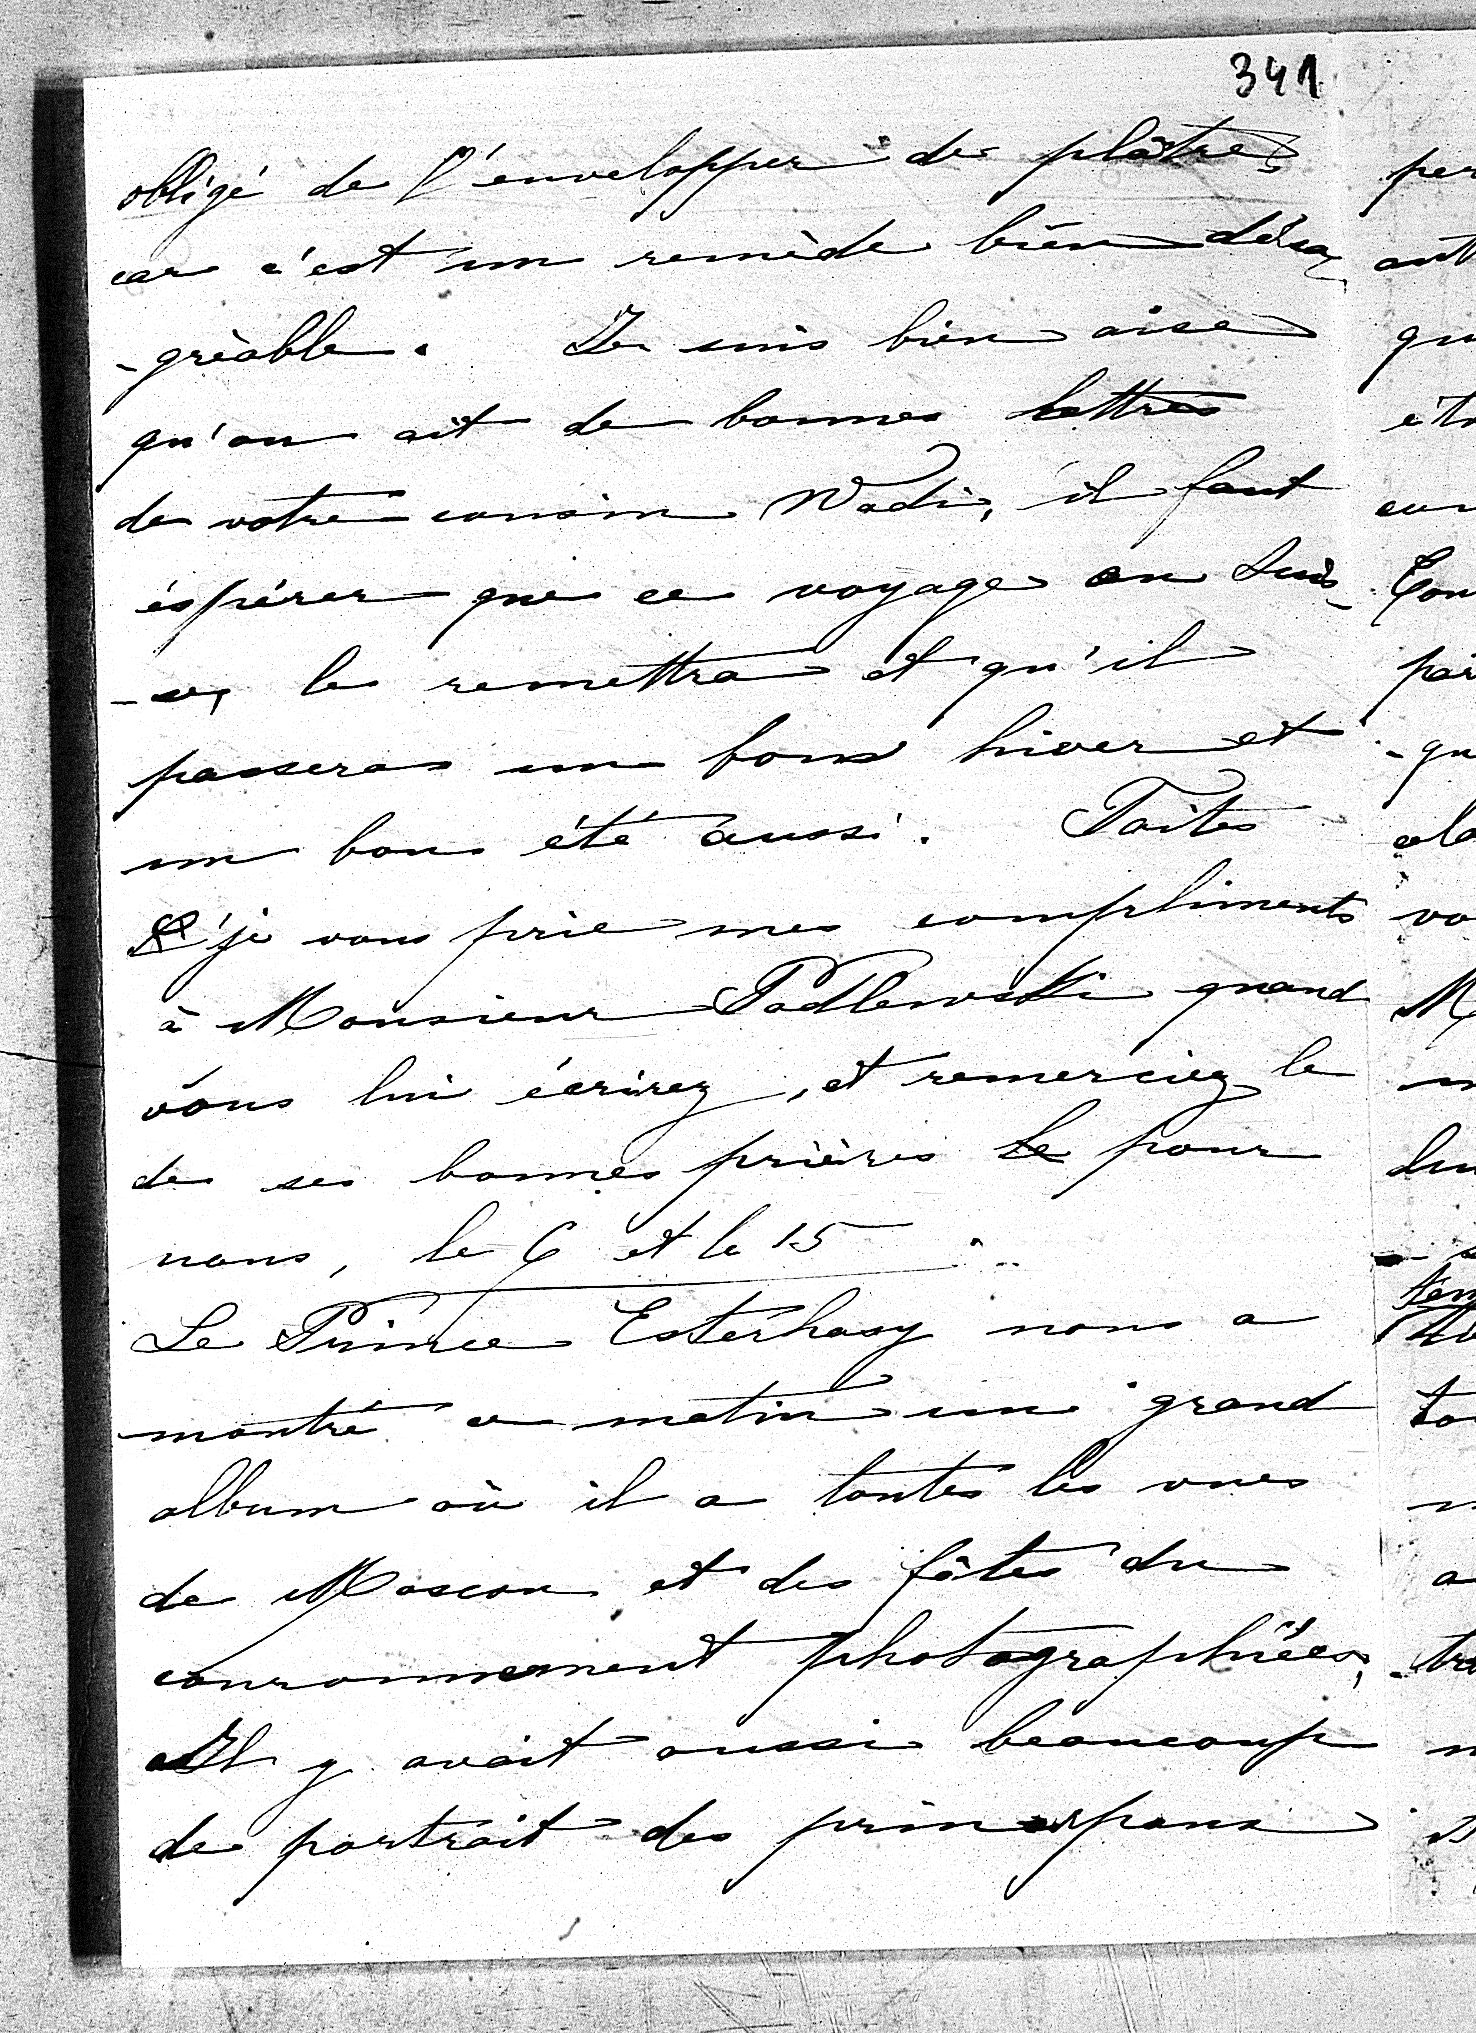 341
obligé de l'envelopper de plâtre,
car c'est un remède bien désa-
-gréable. Je suis bien aise
qu'on ait de bonnes lettres
de votre cousin Wadi, il faut
éspérer que ce voyage en Suis-
-se, le remettra et qu'il
passera un bon hiver et
un bon été aussi. Faites
je vous prie mes compliments
à Monsieur Podlewski quand
vous lui écrirez, et remerciez le
de ses bonnes prières pour
nous, le 6 et le 15
Le Prince Esterhasy nous a
montré ce matin un grand
album où il a toutes les vues
de Moscou et des fêtes du
couronnement photographiées,
Il y avait aussi beaucoup
de portrait des principaux